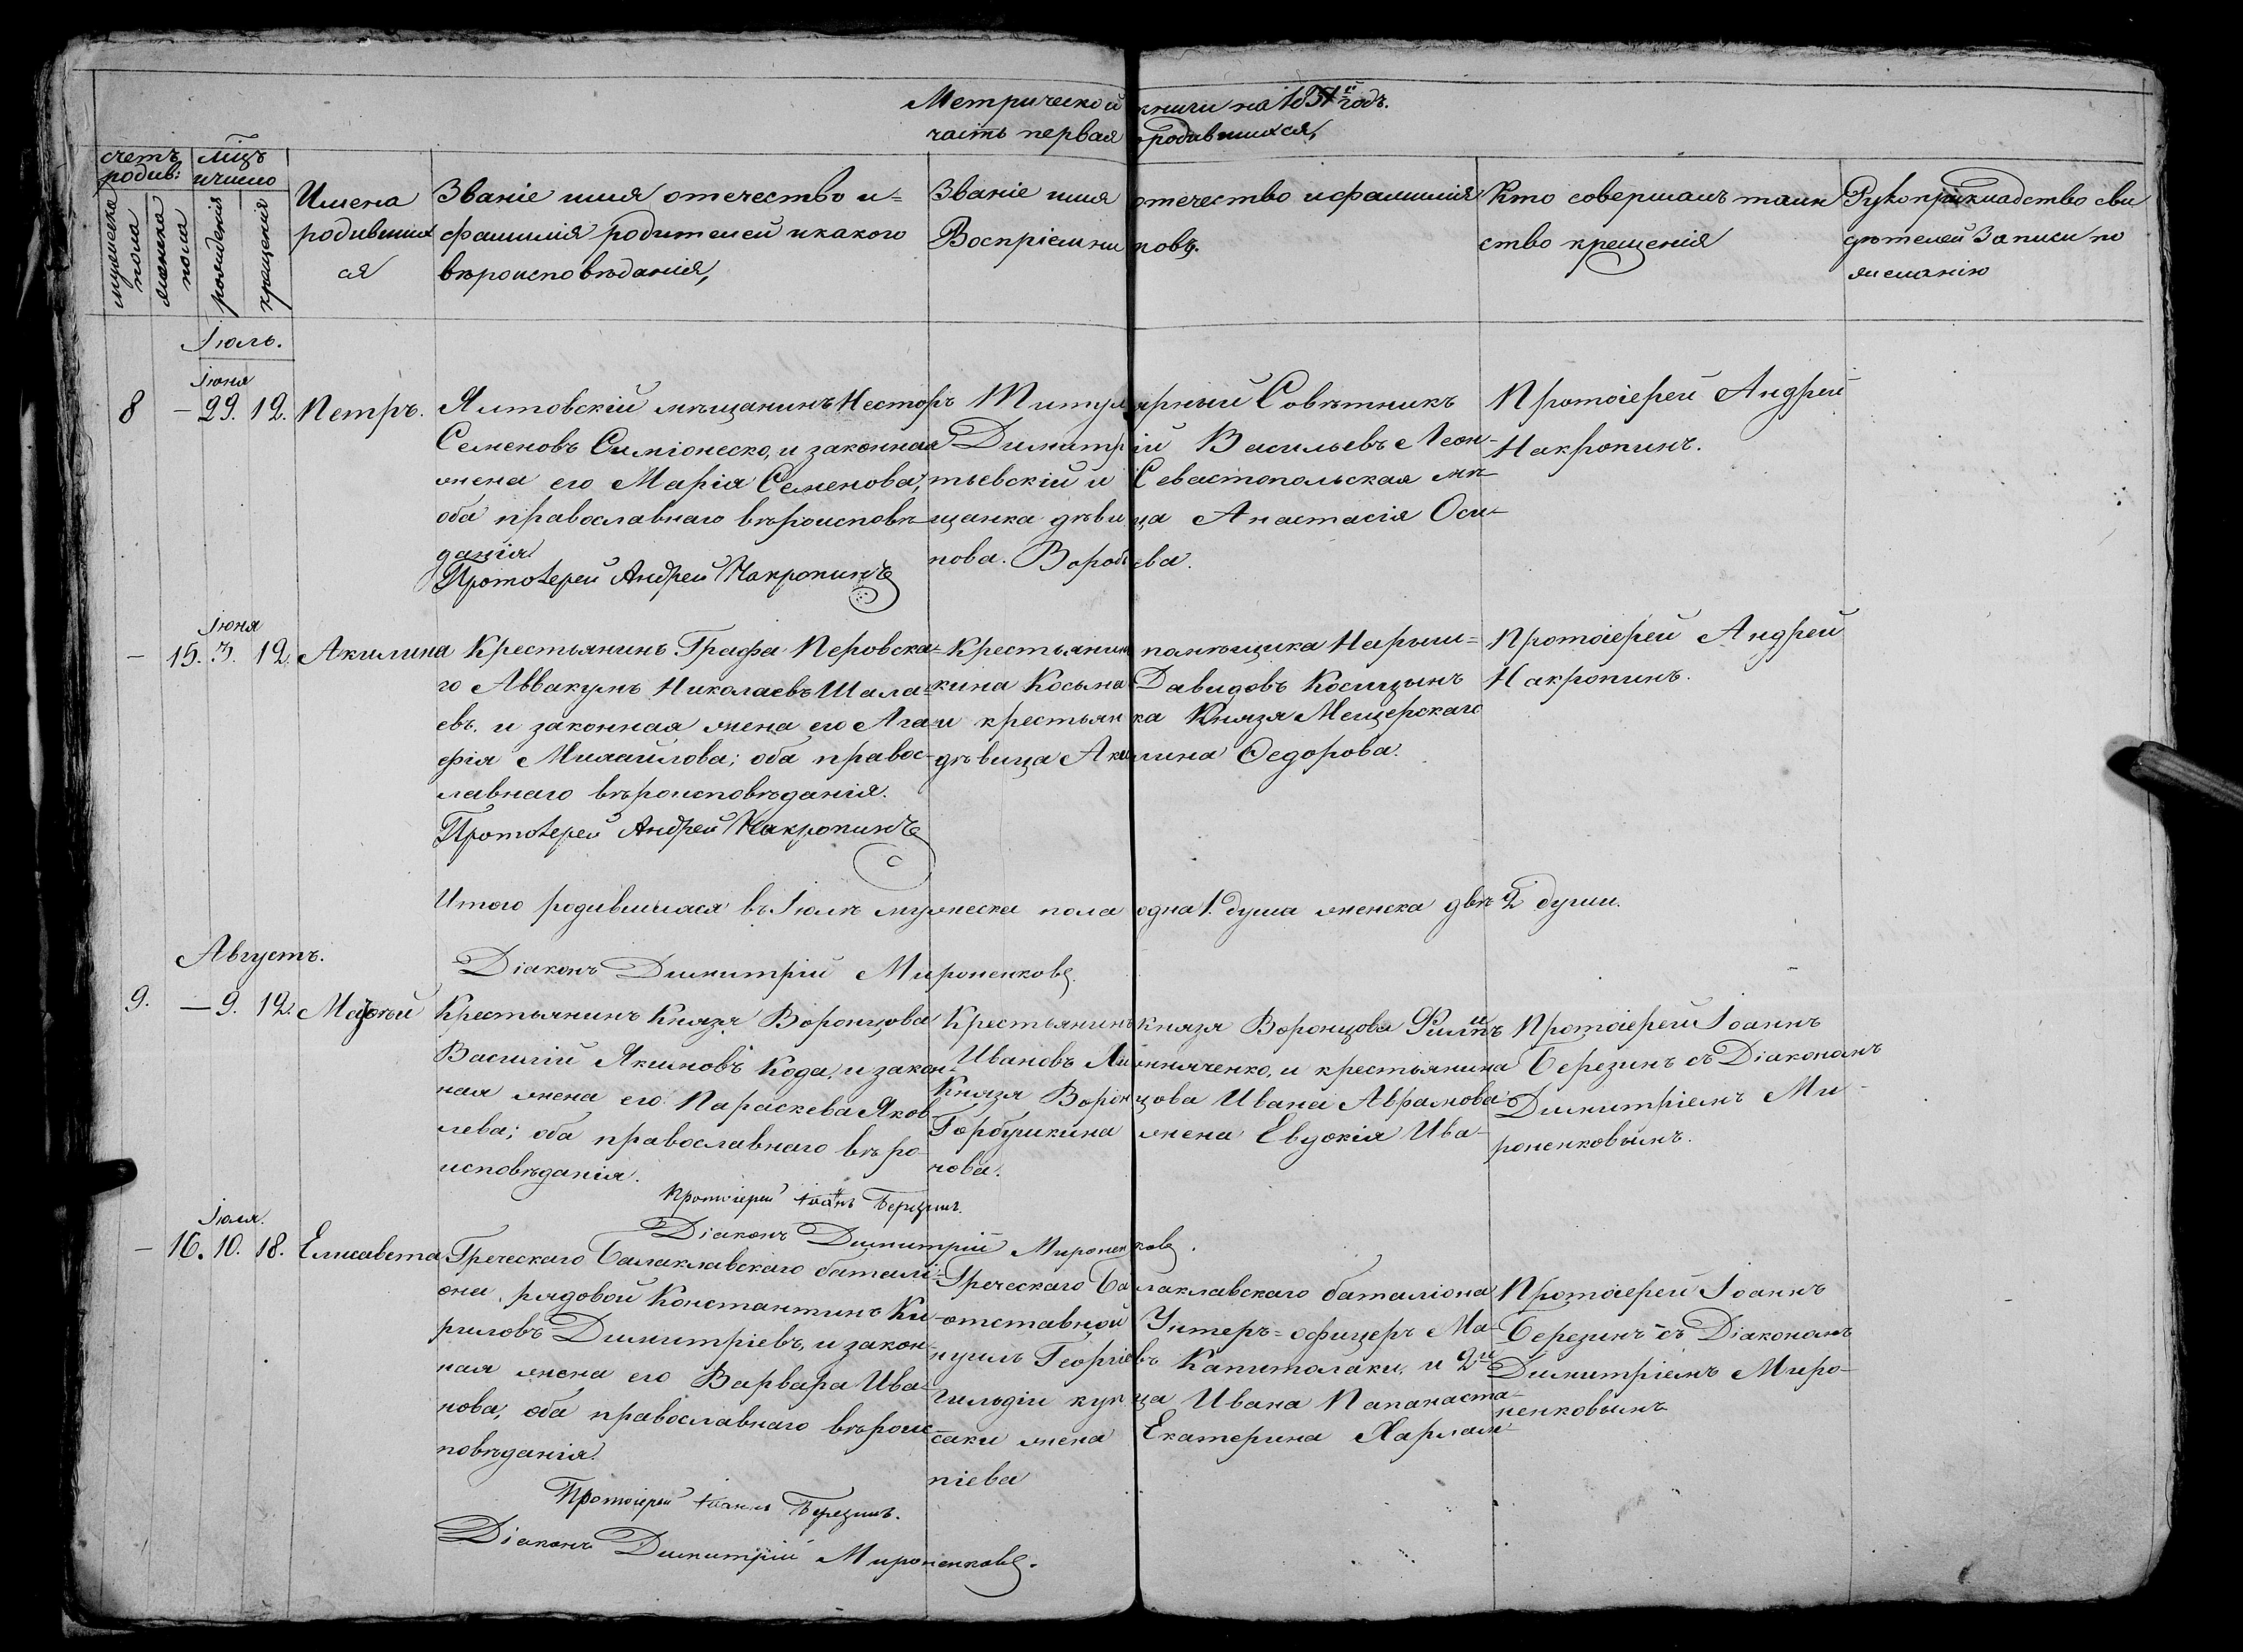 Метрической книги на 185 годъ.
часть первая о родившихся,
счетъ родив:
мужеска пола
женска пола
мѣсцъ и число
рожденія
крещенія
Имена
родивших
ся
Званіе имя отечество и=
фамилія родителей и какого
вѣроисповѣданія,
Званіе имя отечество и фамилія
Воспріемниковъ.
Кто совершалъ таин
ство крещенія
Рукоприкладство сви
дѣтелей записи по
желанію
Іюль.
Іюня
8 — 29. 12. Петръ.
Ялтовскій мѣщанинъ Несторъ
Семеновъ Симіонеско, и законная
жена его Марія Семенова;
оба православнаго вѣроисповѣ-
данія
Протоіерей Андрей Накропинъ
Титулярный Совѣтникъ
Димитрій Васильевъ Леон-
тьевскій и Севастопольская мѣ-
щанка дѣвица Анастасія Оси-
пова. Воробьева.
Протоіерей Андрей
Накропинъ.
Іюня
— 15. 3. 12. Акилина
Крестьянинъ Графа Перовска-
го Аввакумъ Николаевъ Шала-
евъ. и законная жена его Ага-
фія Михайлова; оба правос-
лавнаго вѣроисповѣданія.
Протоіерей Андрей Накропинъ
Крестьянинъ помѣщика Нарыш=
кина Косьма Давидовъ Косицынъ
и крестьянка Князя Мещерскаго
дѣвица Акилина Ѳедорова.
Протоіерей Андрей
Накропинъ.
Итого родившихся въ Іюлѣ мужеска пола одна 1. душа женска двѣ 2 души.
Діаконъ Димитрій Мироненковъ.
Августъ.
9. — 9. 12. Матѳей
Крестьянинъ Князя Воронцова
Василій Якимовъ Кода, и закон-
ная жена его Параскева Яков
лева; оба православнаго вѣро-
исповѣданія.
Протоіерей Іоаннъ Березинъ.
Діаконъ Димитрій Мироненковъ.
Крестьянинъ князя Воронцова Филипъ
Ивановъ и крестьянина
Князя Воронцова Ивана Абрамова
Горбушкина жена Евдокія Ива-
нова.
Протоіерей Іоаннъ
Березинъ съ Діакономъ
Димитріемъ Ми-
роненковымъ.
Іюля.
— 16. 10. 18. Елисавета
Греческаго Балаклавскаго баталі-
она, рядовой Константинъ Ки-
риловъ Димитріевъ, и закон-
ная жена его Варвара Ива-
нова, оба православнаго вѣроис
повѣданія.
Протоіерей Іоаннъ Березинъ.
Діаконъ Димитрій Мироненковъ.
Греческаго Балаклавскаго баталіона
отставной Унтеръ=офицеръ Ма-
нуилъ Георгіевъ Капитолаки, и 2й
гильдіи купца Ивана Папанаста-
саки жена Екатерина Харлам-
піева
Протоіерей Іоаннъ
Березинъ съ Діакономъ
Димитріемъ Миро-
ненковымъ